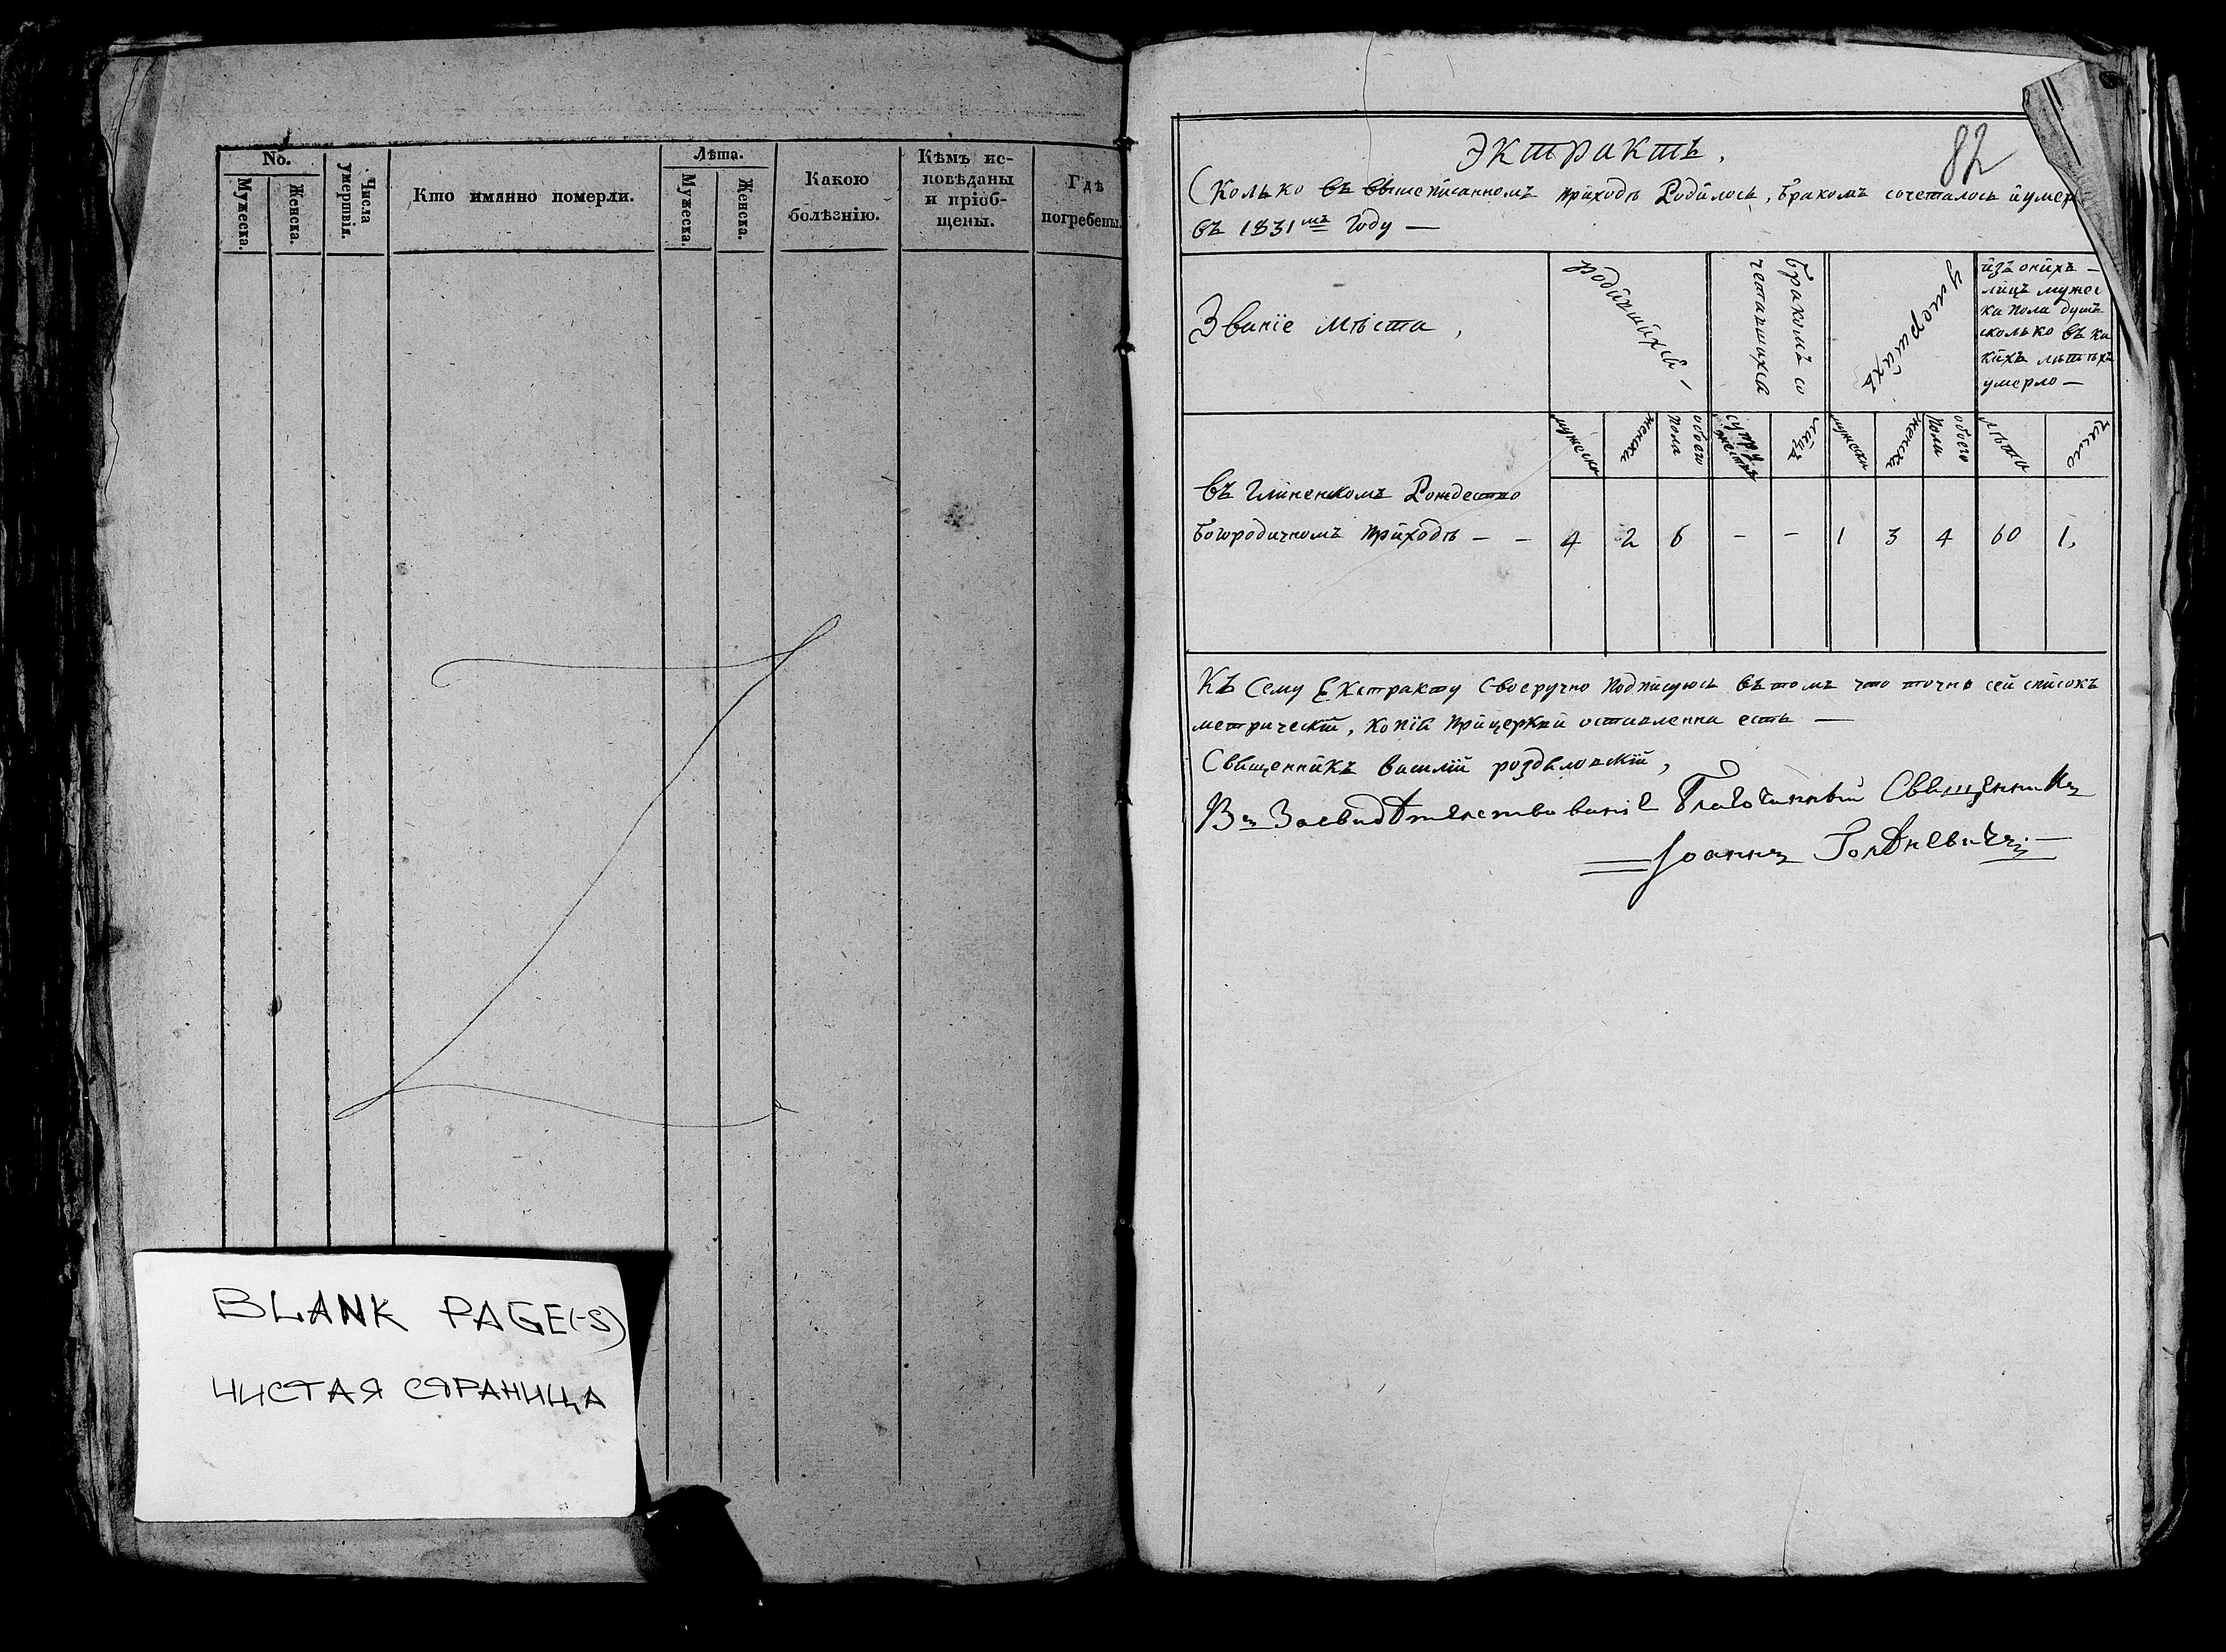 No.
Мужеска.
Женска.
Числа умертвія.
Кто имянно померли.
Лѣта.
Мужеска.
Женска.
Какою
болѣзнію.
Кѣмъ ис-
повѣданы
и пріоб-
щены.
Гдѣ
погребены.
BLANK PAGE(-S)
ЧИСТАЯ СТРАНИЦА
82
Экстрактъ,
Сколько въ вышеписанномъ приходѣ Родилось, бракомъ сочеталось и умер
въ 1831мъ году —
Званіе мѣста,
родившихся —
бракомъ со
четавшихся
умершихъ
изъ онихъ —
лицъ мужес
ка пола душъ
сколько въ ка
кихъ лѣтахъ
умерло —
мужеска
женска
обоего
пола
супру
жества
лицъ
мужеска
женска
обоего
пола
лѣта
число
въ Глиненкомъ Рождество
богородичномъ приходѣ — — 4 2 6 — — 1 3 4 60 1,
Къ сему Екстракту своеручно подписуюсь вътомъ что точно сей списокъ
метрическій, копія прицеркви оставленна есть —
Священникъ василій роздаловскій,
Въ Засвидѣтелствованіе Благочинный Священникъ
Іоаннъ Голѣневичъ; —